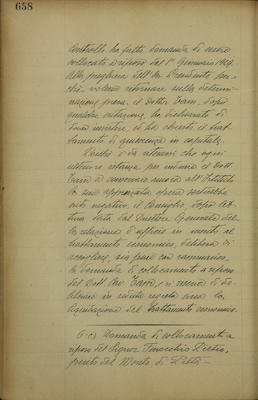 658
controlli ha fatto domanda di essere
collocato a riposo dal 1° Gennaio 1924.
Alla preghiera dell'On. Presidente per-
chè volesse ritornare sulla determi-
nazione presa, il Dottor Tarri, dopo
qualche esitazione, ha dichiarato di
dover insistere, ed ha chiesto il trat-
tamento di quiescenza in capitale.
Poichè è da ritenersi che ogni
ulteriore istanza per indurre il Dott.
a conservare ancora all'Istituto
la sua apprezzata opera sortirebbe
esito negativo, il Consiglio dopo let-
tura data dal Direttore Generale del-
la relazione d'ufficio in merito al
trattamento economico, delibera di
accogliere, sia pure con rammarico,
la domanda di collocamento a riposo
del Dott. Cav. e si riserva di de-
liberare in seduta segreta circa la
liquidazione del trattamento economico.
6-c) Domanda di collocamento a
riposo del Signor Pietro,
perito del Monte di Pietà.-